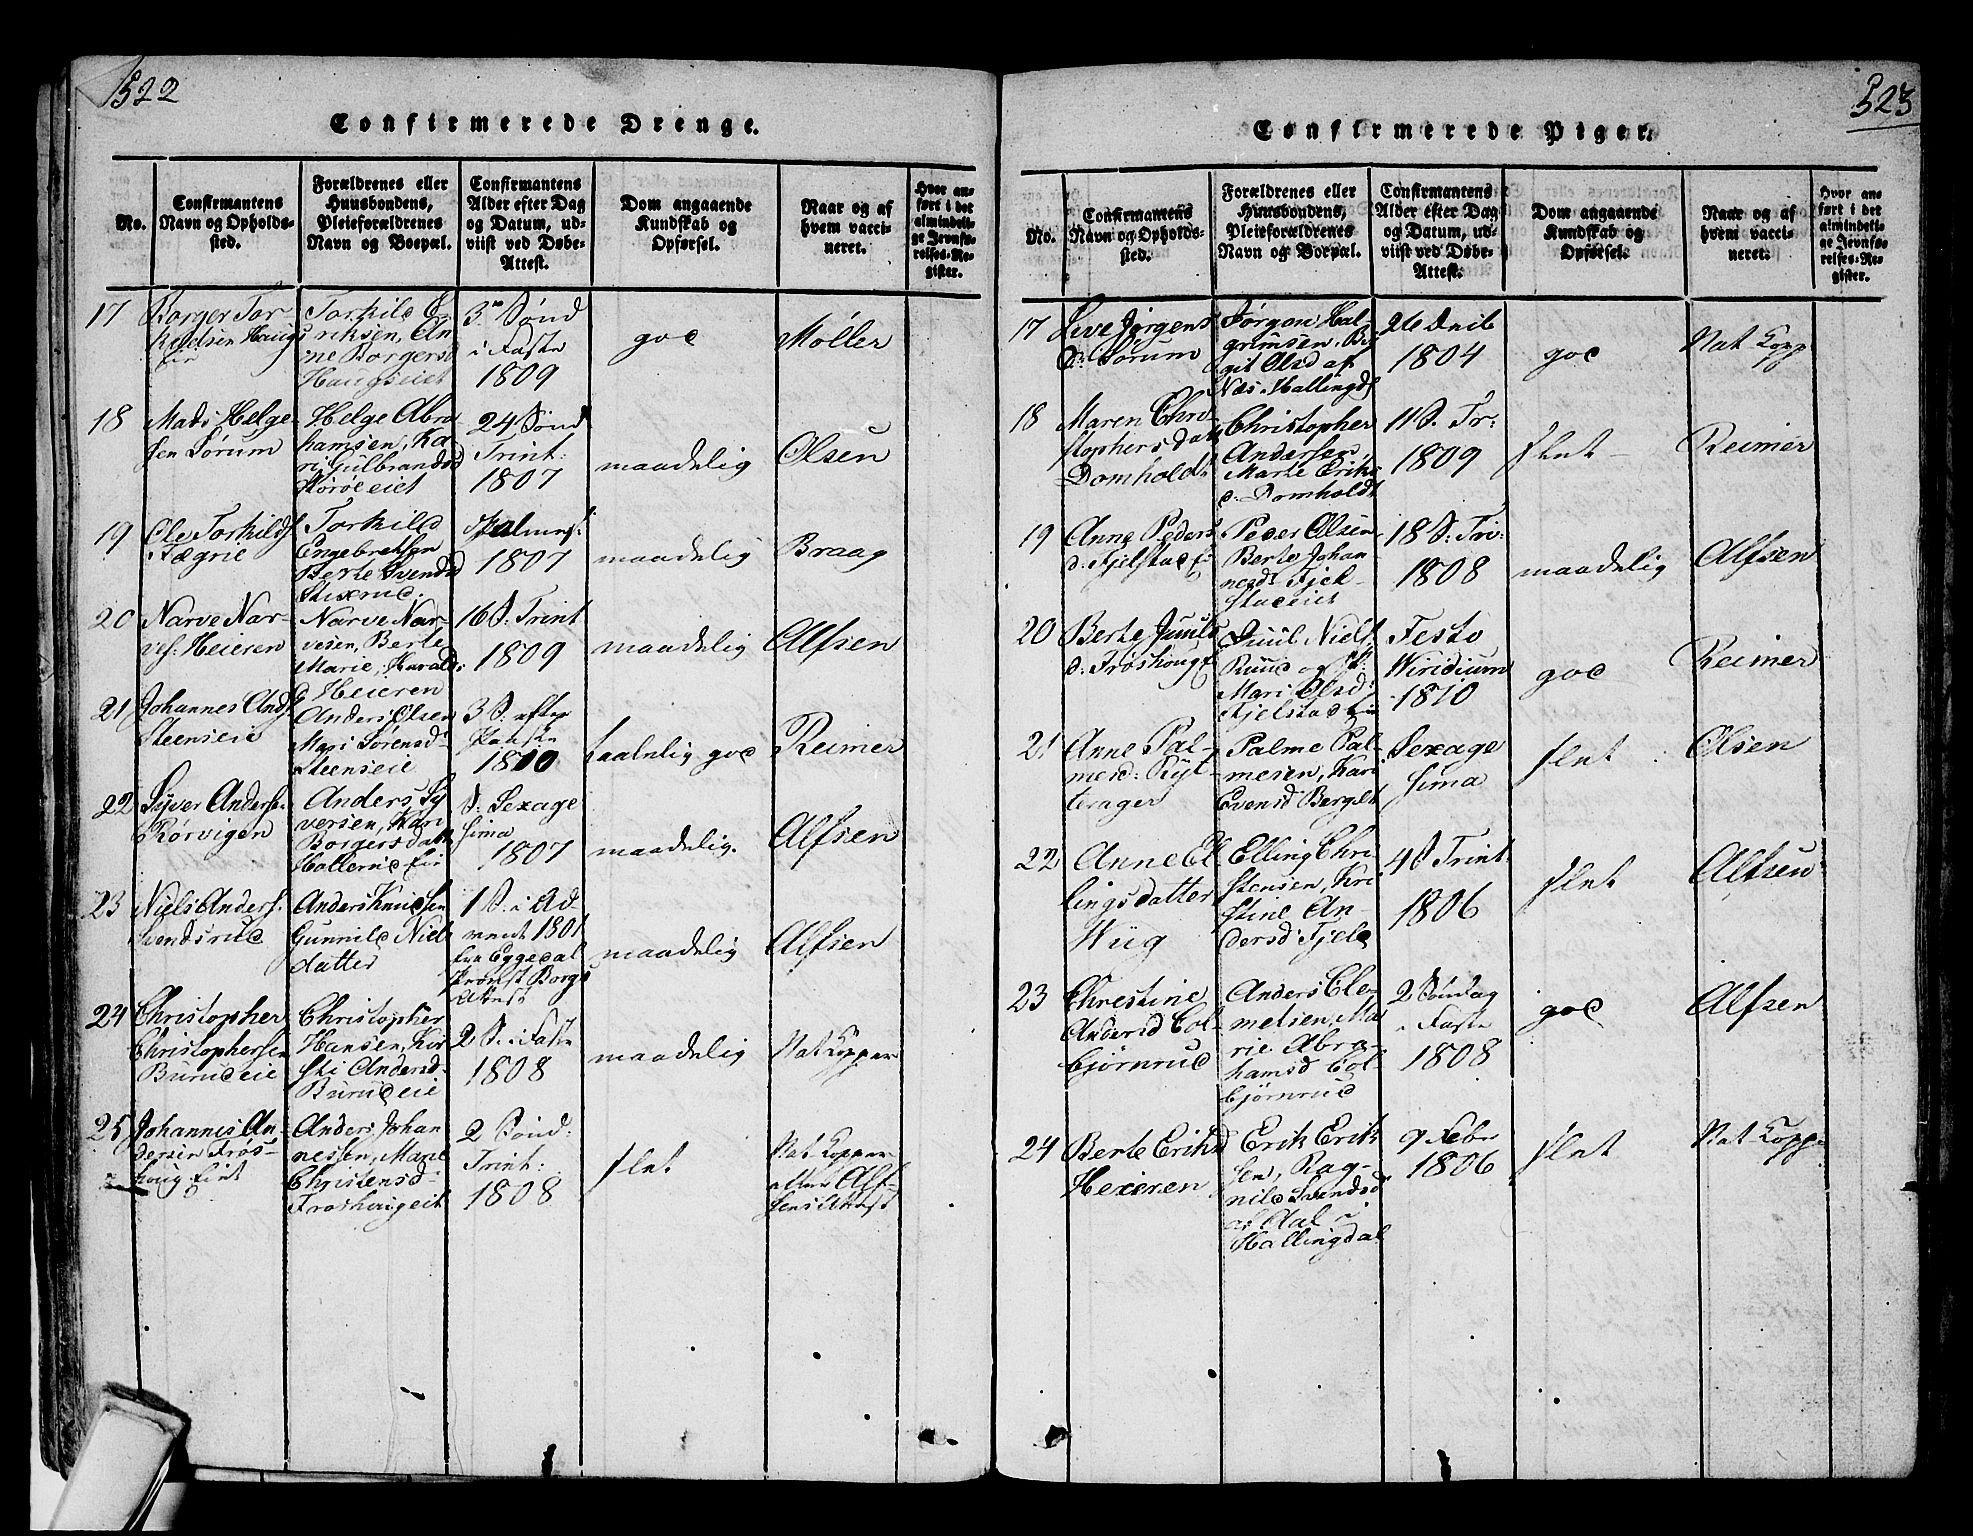 522
Confirmerede Drenge.
No.
Confirmantens
Navn og Opholds-
sted.
Forældrenes eller
Huusbondens,
Pleieforældrenes
Navn og Boepæl.
Confirmantens
Alder efter Dag
og Datum, ud-
viist ved Døbe-
Attest.
Dom angaaende
Kundskab og
Opførsel.
Naar og af
hvem vacci-
neret.
Hvor an-
ført i det
almindeli-
ge Jevnfø-
relses-Re-
gister.
17
Borger Tor-
Haugs
eie
Torkild E-
riksen, An-
ne Borgersd
Haugseiet
3 Sønd
i Faste
1809
god
Møller
18
Mads Helge-
sen Sørum
Helge Abra
hamsen, Ka-
ri Gulbrandsd
24 Sønd
Trint:
1807
maadelig
Olsen
19
Ole Torkilds.
Fægrie
Torkild
Engebretsen
Berte Svendsd
Stixrud.
Palmes:
1807
maadelig
Braag
20
Narve Nar-
ves: Heieren
Narve Nar-
vesen, Berte
Marie, Haralds:
Heieren
16 S. Trint
1809
maadelig
Alfsen
21
Johannes Ands
Steenseie
Anders Olsen
Mari Sørensd
Steenseie
3 S. efter
Paaske
1810
taalelig god
Reimer
22
Syver Anderse.
Rørvigen
Anders, Sy
versen, Kari
Borgersdatt
Hallerud Eie
S: Sexage
sima
1807
maadelig.
Alfsen
23
Niels Anders.
Svendsrud
Anders Knudsen
Gunnild Niels
datter
1 S. i Ad
vent 1801
fra Eggedal
Attest
maadelig
Alfsen
24
Christopher
Christophersen
Burudeie
Christopher
Hansen, Kir
sti Andersd
Burudeie
2 S. i Faste
1808
maadelig
Nat Kopper
25
Johannes An-
dersen Frøs-
houg Eiet
Anders Johan
nessen, Marie
Christensd-
Froshougeit
2 Sønd:
Trint:
1808
slet
Nat Kopper
efter Alf-
sens Attest
523
Confirmerede Piger.
No.
Confirmantens
Navn og Opholds-
sted.
Forældrenes eller
Huusbondens,
Pleieforældrenes
Navn og Boepæl.
Confirmantens
Alder efter Dag
og Datum, ud-
viist ved Døbe-
Attest.
Dom angaaende
Kundskab og
Opførsel.
Naar og af
hvem vacci-
neret.
Hvor an-
ført i det
almindeli-
ge Jevnfø-
relses-Re-
gister.
17
Live Jørgens
d: Sørum
Jørgen Hal-
grimsen, Bi
git Olsd af
Næs Hallingd
26 
1804
god
Nat Kopp
18
Maren Chri
stophersdatt
Domholdt
Christopher
Andersen,
Marte Eriks
d: Domholdt
11 S. Tr:
1809
slet
Reimer
19
Anne Peders
d. Fjelstad E
Peder Olsen
Berte Johan
nesd: Fjel-
stadeiet
18 S: Tri:
1808
maadelig
Alfsen
20
Berte Juuls
d. Frøshoug E
Juul Niels
Ruud og
Mari Olsd:
Fjelstad Eie
Festo
Viridium
1810
god
Reimer
21
Anne Pal-
mesd: Ryt-
terager
Palme Pal-
mesen, Kari
Evensd Berget
Sexage
sima
slet
Olsen
22
Anne El
lingsdatter
Wiig
Elling Chri-
stensen, Kri
stine An-
dersd: Fjeld
4 S Trint
1806
slet
Alfsen
23
Chrestine
Andersd Col-
bjørnrud
Anders Cle-
metsen, Ma
rie Abra-
hamsd Col-
bjørnrud
2 Søndag
i Faste
1808
god
Alfsen
24
Berte Eriksd
Hexeren
Erik Erik
sen, Rag-
nild Svendsd
af Aal i
Hallingdal
9 Febr
1806
slet
Nat Kopp